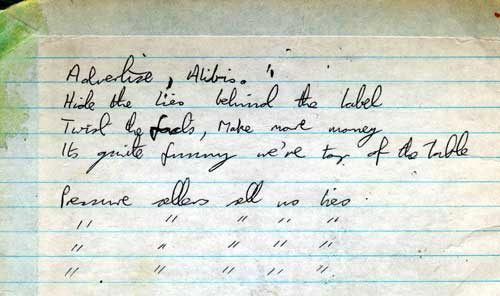 Advertise, Alibis. "
Hide the lies behind the label
Twist the facts, Make more money
Its quite funny we're top of the table
Pressure sellers sell us lies.
" " " " "
" " " " "
" " " " "